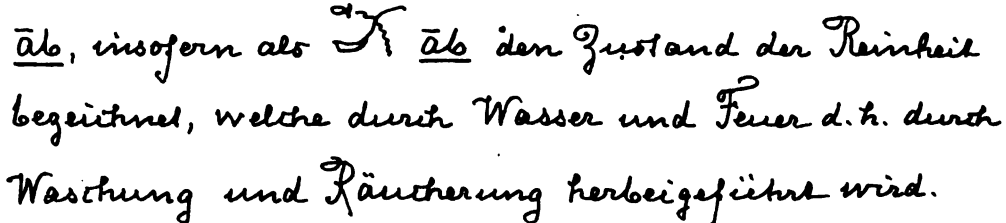 āb, insofern als āb den Zustand der Reinheit
bezeichnet, welche durch Wasser und Feuer d. h. durch
Waschung und Räucherung herbeigeführt wird.